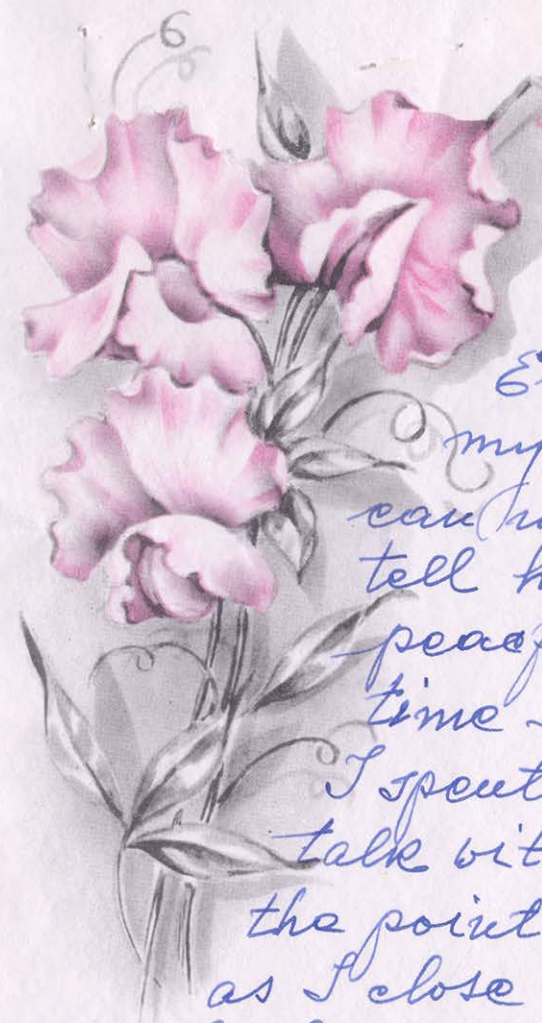 my
can
tell h
peac
time -
I spent
talk wit
the point
as I close